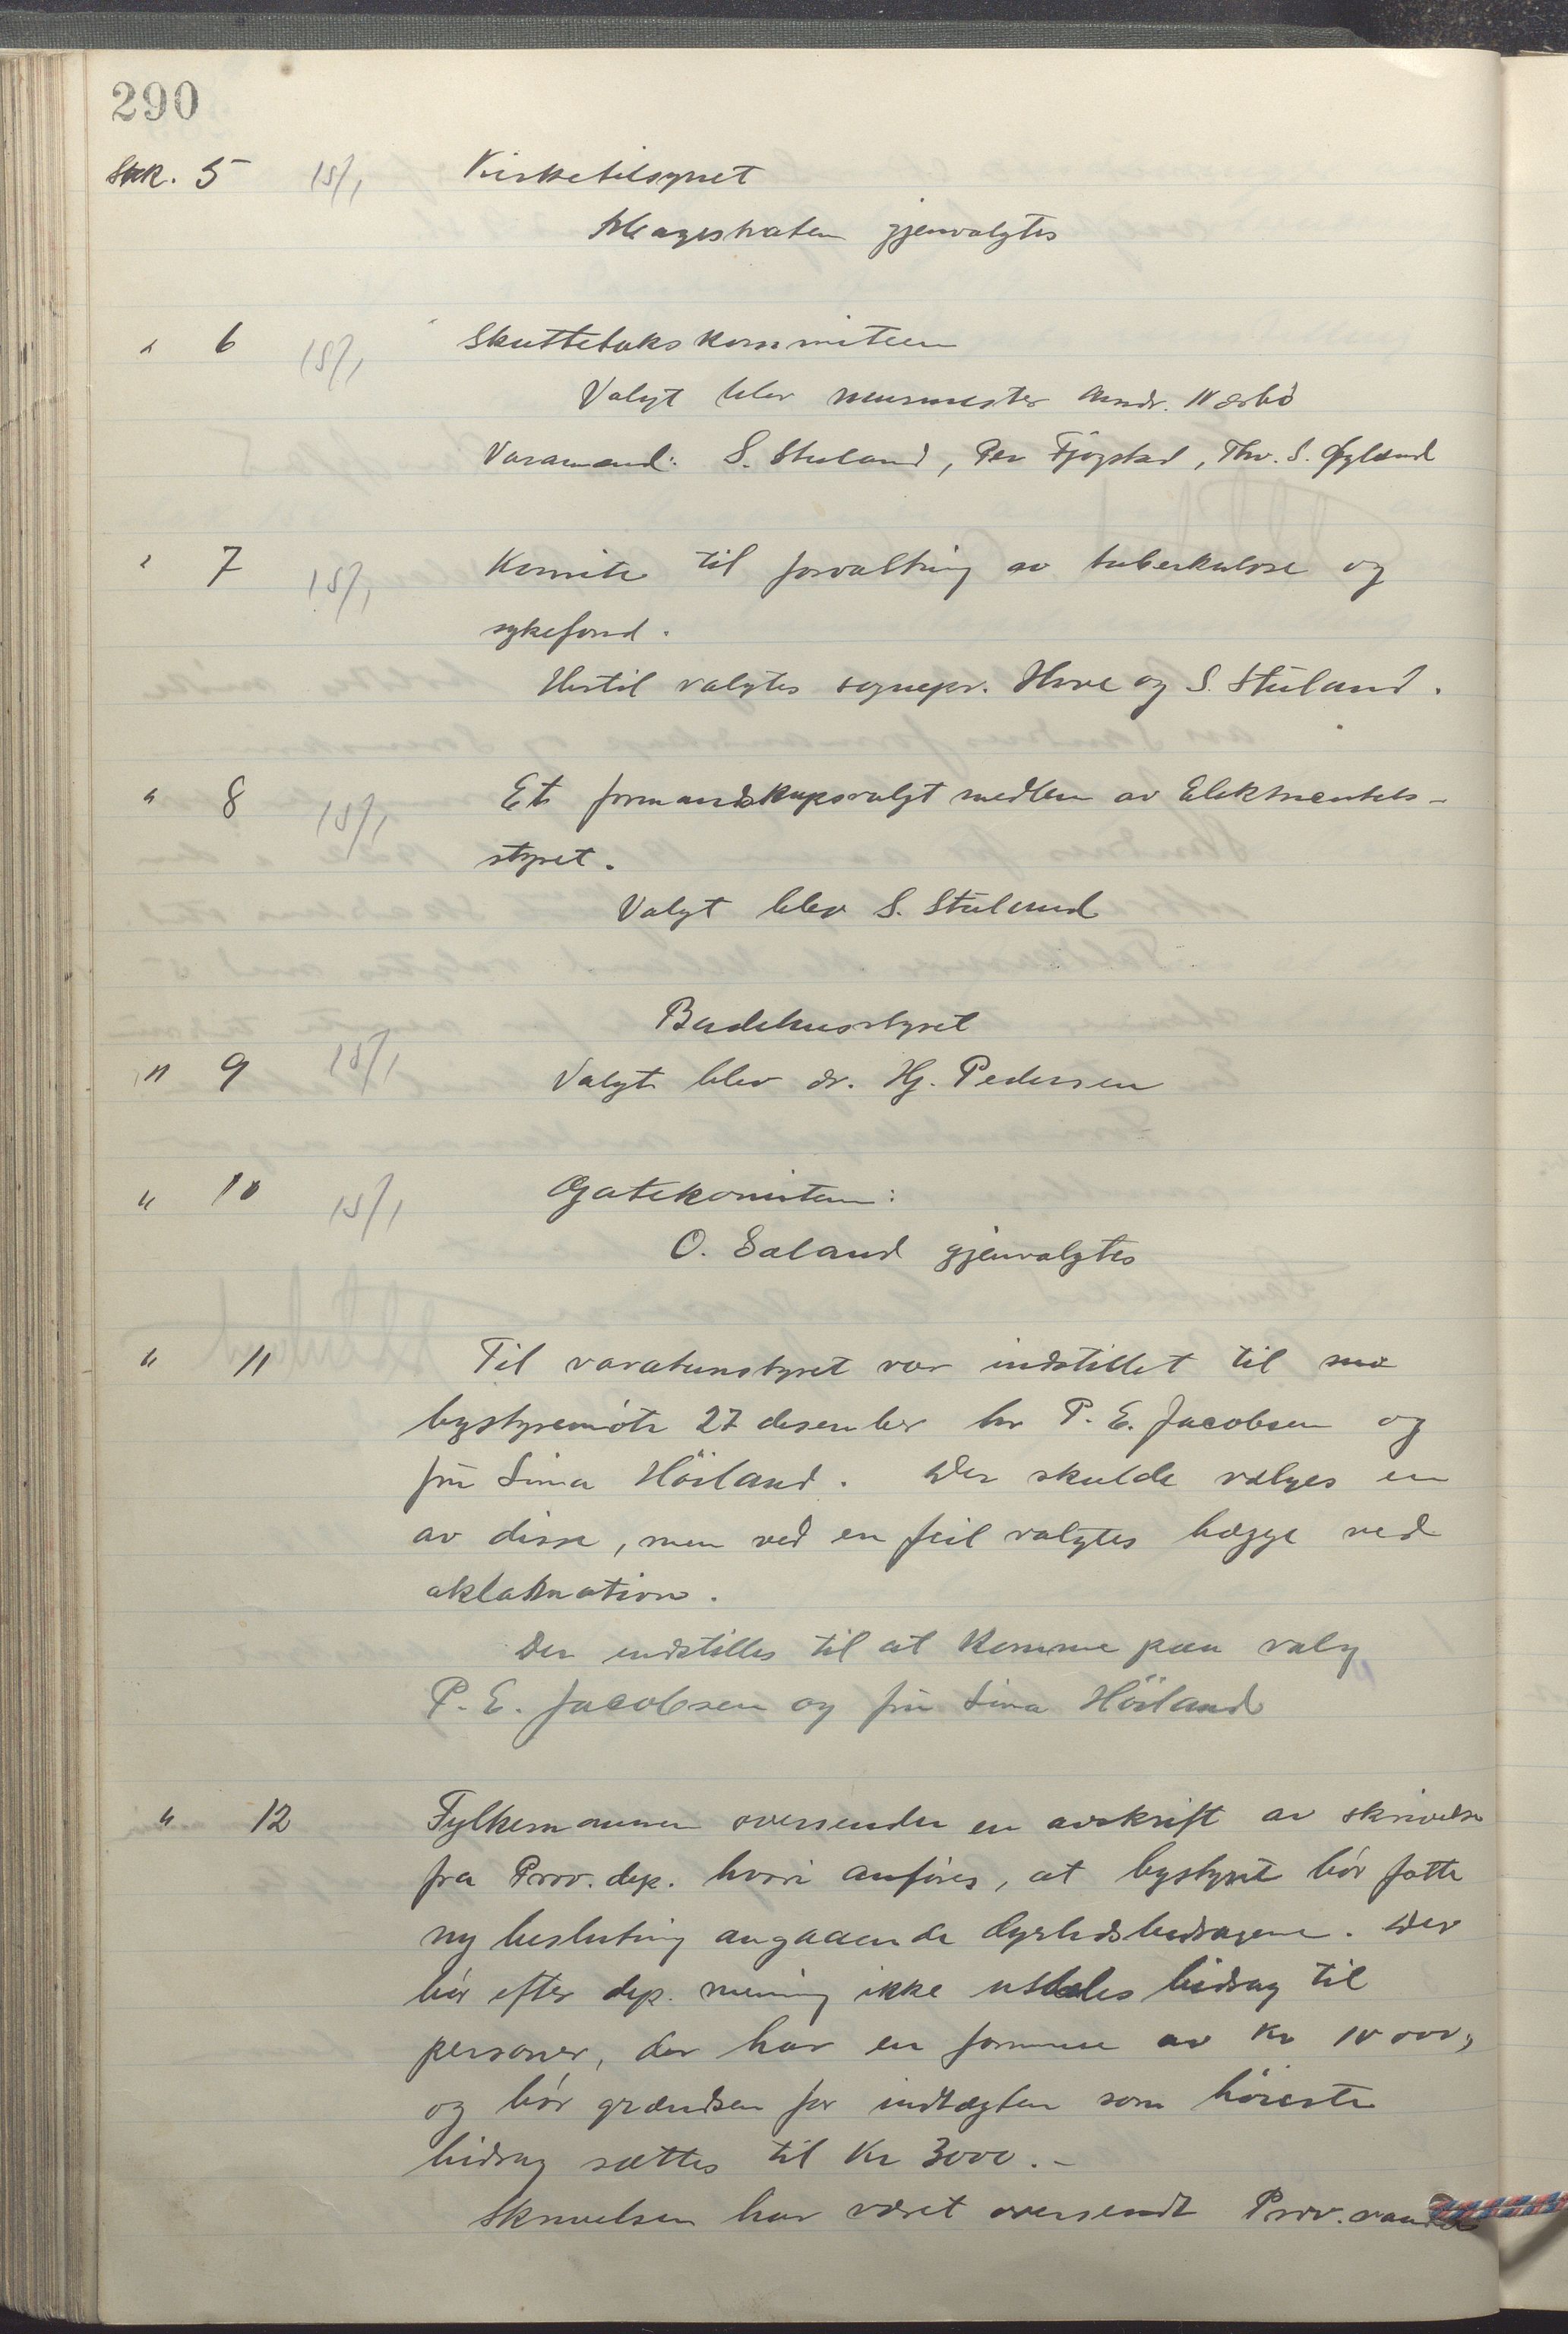 290
Sak. 5 15/1 Kirketilsynet
Magistraten gjenvalgtes
" 6 15/1 Skattetakskommiteen
Valgt blev murmester Andr. Nærbö
Varamænd: S. Stuland, Per Fjogstad, Thv. S. Øgland
" 7 15/1 Komite til forvaltning av tuberkulose og
sykefond.
Hertil valgtes sognepr. Hove og S. Stuland.
" 8 15/1 Et formandskapsvalgt medlem av Elektricitets-
styret.
Valgt blev S. Stuland
Badehusstyret
" 9 15/1 Valgt blev dr. Hj. Pedersen
" 10 15/1 Gatekomiteen:
O. Saland gjenvalgtes
" 11 Til varatunstyret var indstillet til
bystyremöte 27 desember hr P. E. Jacobsen og
frü Sina Höiland. Der skulde vælges en
av disse, men ved en feil valgtes begge ved
aklamation.
Der indstilles til at komme paa valg
P. E. Jacobsen og frü Sina Höiland
" 12 Fylkesmannen oversender en avskrift av skrivelse
fra Prov. dep. hvori anføres, at bystyret bör fatte
ny beslutning angaaende dyrtidsbidragene. Der
bör efter dep. mening ikke utdeles bidrag til
personer, der har en formue av Kr 10 000,
og bör grændsen for indtægten som höieste
bidrag sættes til Kr 3000.-
Skrivelsen har været oversendt Prov.raadet